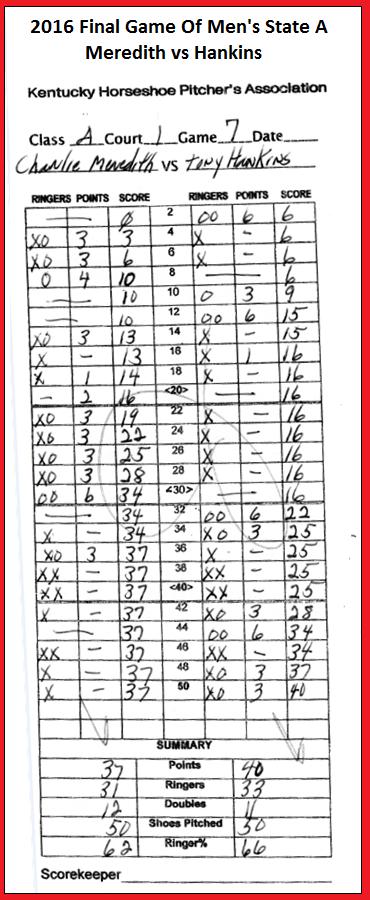 2016 Final Game Of Men's State A
Meredith vs Hankins
Kentucky Horseshoe Pitcher's Association
Class A Court 1 Game 7 Date
Charlie Meredith vs Tony Hankins
RINGERS POINTS SCORE RINGERS POINTS SCORE
— 0 2 OO 6 6
XO 3 3 4 X - 6
XO 3 6 6 X - 6
O 4 10 8 — 6
— 10 10 O 3 9
— 10 12 OO 6 15
XO 3 13 14 X - 15
X - 13 16 X 1 16
X 1 14 18 X - 16
- 2 16 <20> — 16
XO 3 19 22 X - 16
XO 3 22 24 X - 16
XO 3 25 26 X - 16
XO 3 28 28 X - 16
OO 6 34 <30> — 16
— 34 32 OO 6 22
X - 34 34 XO 3 25
XO 3 37 36 X - 25
XX - 37 38 XX - 25
XX - 37 <40> XX - 25
X - 37 42 XO 3 28
— 37 44 OO 6 34
XX - 37 46 XX - 34
X - 37 48 XO 3 37
X - 37 50 XO 3 40
SUMMARY
37 Points 40
31 Ringers 33
12 Doubles 11
50 Shoes Pitched 50
62 Ringer% 66
Scorekeeper